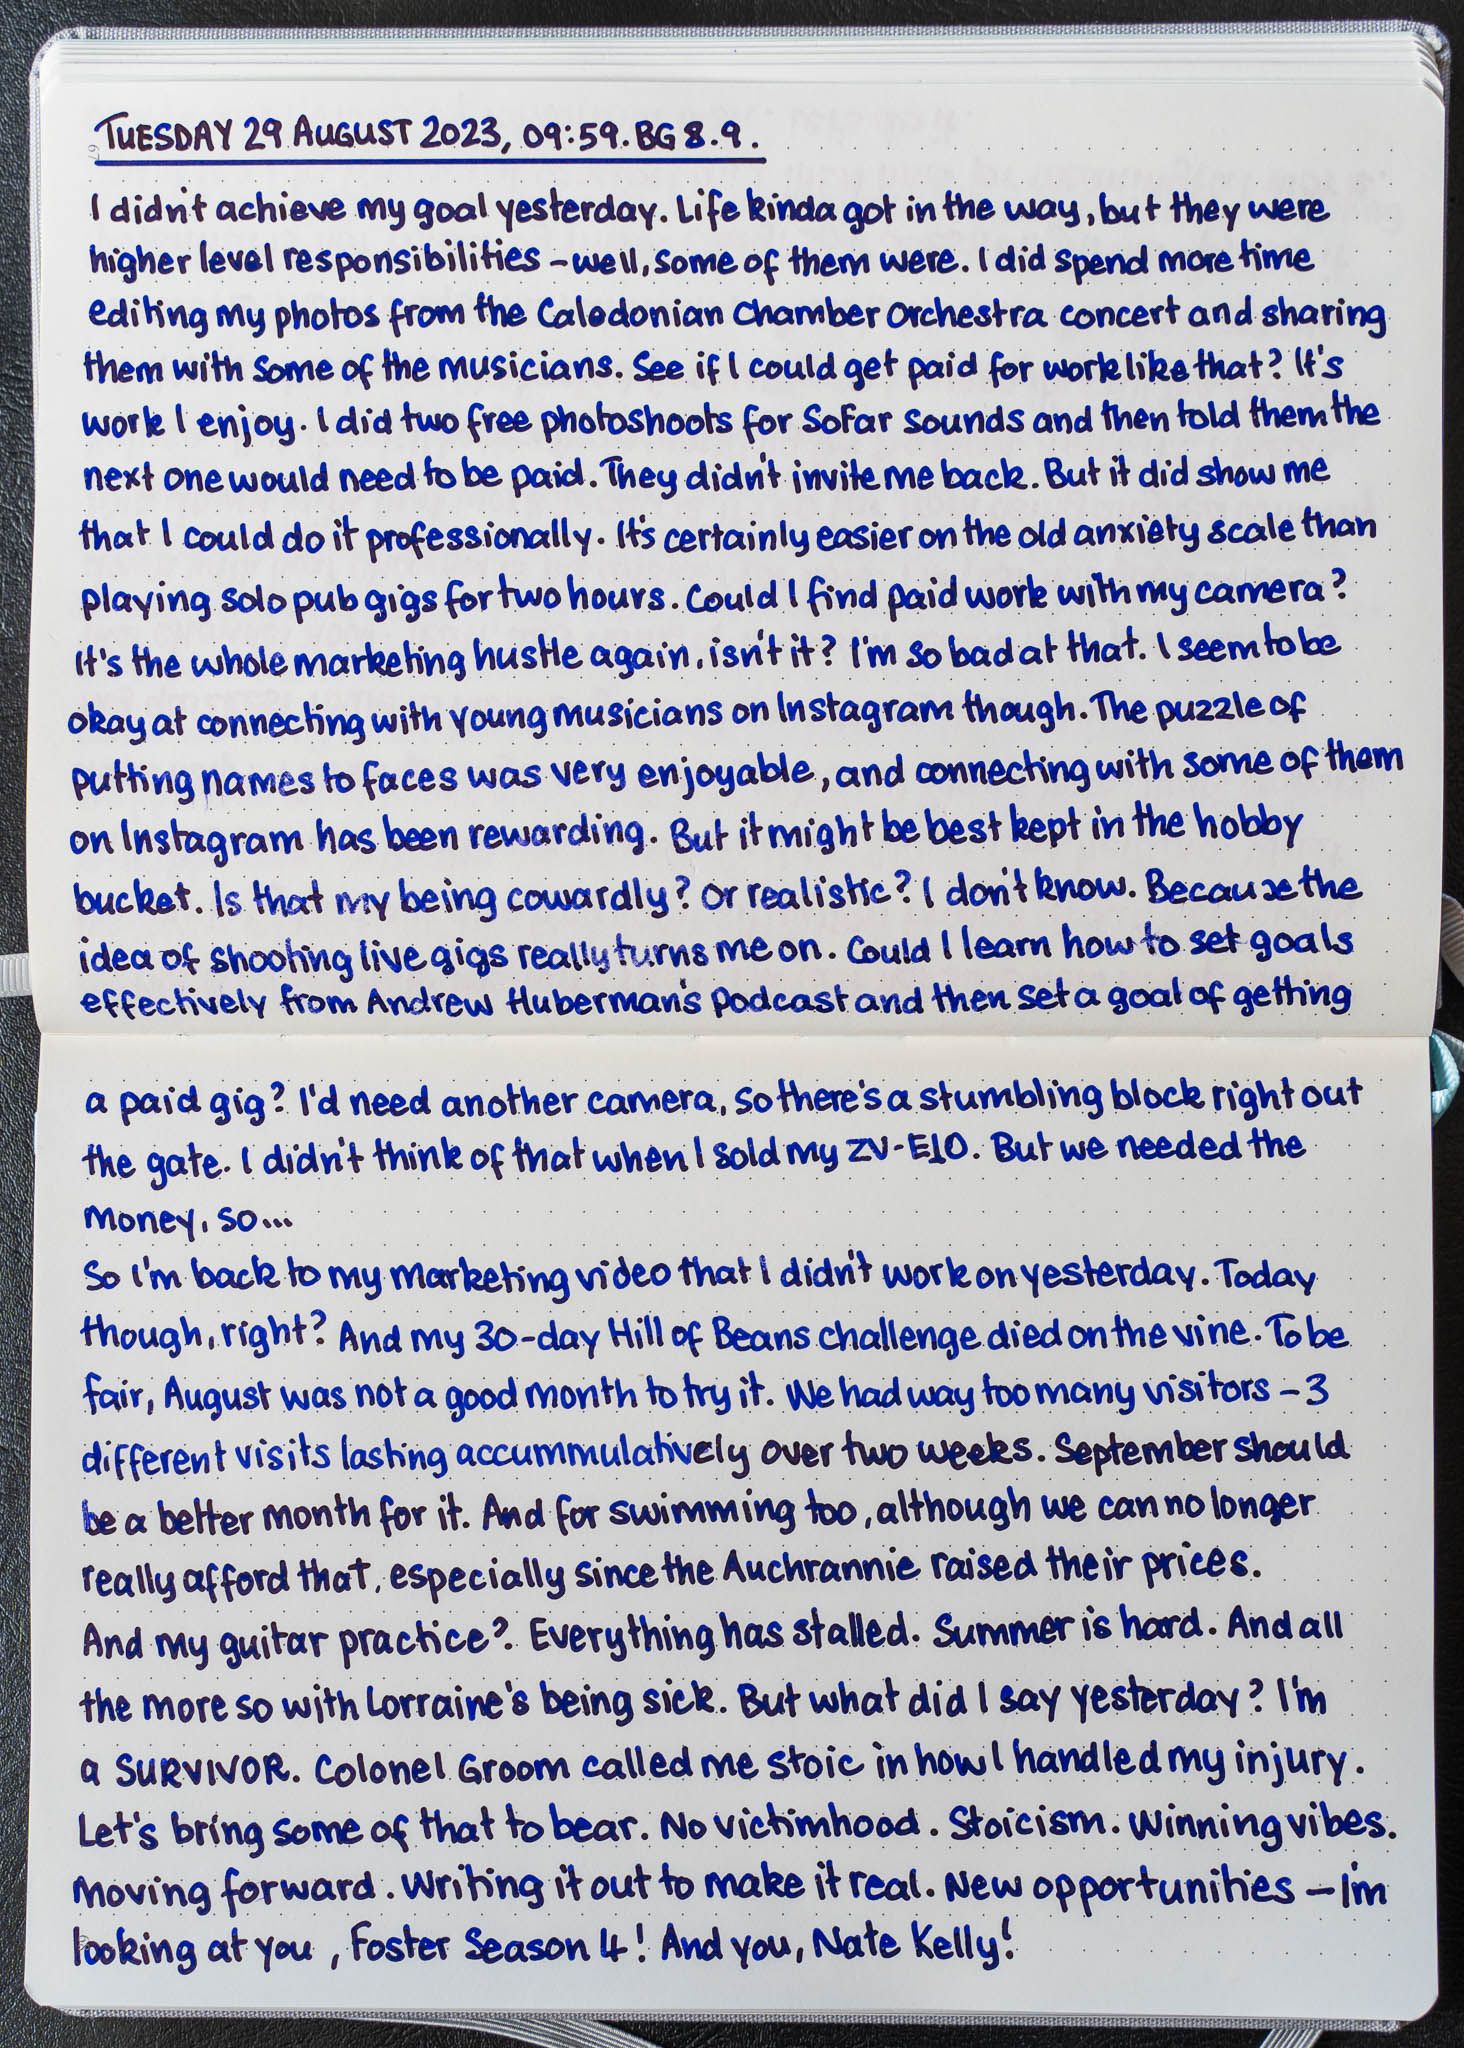 TUESDAY 29 AUGUST 2023, 09:59. BG 8.9.
I didn't achieve my goal yesterday. Life kinda got in the way, but they were
higher level responsibilities – well, some of them were. I did spend more time
editing my photos from the Caledonian Chamber Orchestra concert and sharing
them with some of the musicians. See if I could get paid for work like that? It's
work I enjoy. I did two free photoshoots for SoFar Sounds and then told them the
next one would need to be paid. They didn't invite me back. But it did show me
that I could do it professionally. It's certainly easier on the old anxiety scale than
playing solo pub gigs for two hours. Could I find paid work with my camera?
It's the whole marketing hustle again, isn't it? I'm so bad at that. I seem to be
okay at connecting with young musicians on Instagram though. The puzzle of
putting names to faces was very enjoyable, and connecting with some of them
on Instagram has been rewarding. But it might be best kept in the hobby
bucket. Is that my being cowardly? Or realistic? I don't know. Because the
idea of shooting live gigs really turns me on. Could I learn how to set goals
effectively from Andrew Huberman's podcast and then set a goal of getting
a paid gig? I'd need another camera, so there's a stumbling block right out
the gate. I didn't think of that when I sold my ZV-E10. But we needed the
money, so...
So I'm back to my marketing video that I didn't work on yesterday. Today
though, right? And my 30-day Hill of Beans challenge died on the vine. To be
fair, August was not a good month to try it. We had way too many visitors – 3
different visits lasting accummulatively over two weeks. September should
be a better month for it. And for swimming too, although we can no longer
really afford that, especially since the Auchrannie raised their prices.
And my guitar practice? Everything has stalled. Summer is hard. And all
the more so with Lorraine's being sick. But what did I say yesterday? I'm
a SURVIVOR. Colonel Groom called me stoic in how I handled my injury.
Let's bring some of that to bear. No victimhood. Stoicism. Winning vibes.
Moving forward. Writing it out to make it real. New opportunities – I'm
looking at you, Foster Season 4! And you, Nate Kelly!